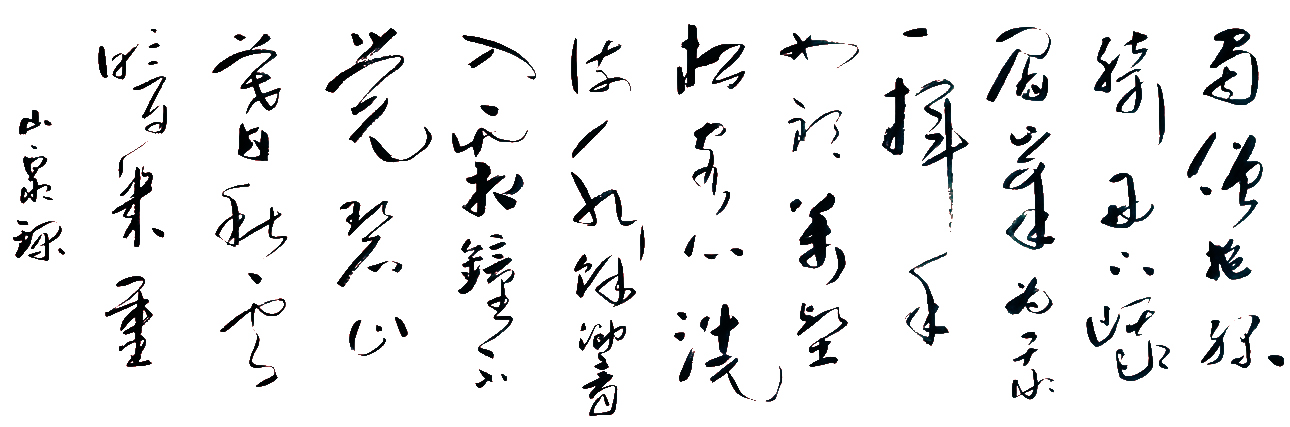 蜀僧抱綠
綺西下峨
眉峯為我
一揮手
如聽萬壑
松客心洗
流水餘響
入霜鐘不
覺碧山
暮秋雲
暗幾重
山泉